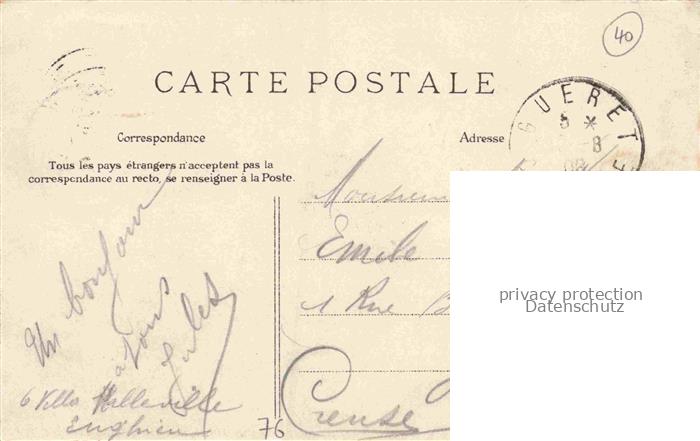 40
CARTE POSTALE
GUERET
5 *
8
08
Correspondance
Adresse
Tous les pays étrangers n'acceptent pas la
correspondance au recto, se renseigner à la Poste.
Un bonjour
à tous
Jules
6 Villa Malleville
Enghien
76
Monsieur
Emile
1 Rue B
Creuse
privacy protection
Datenschutz